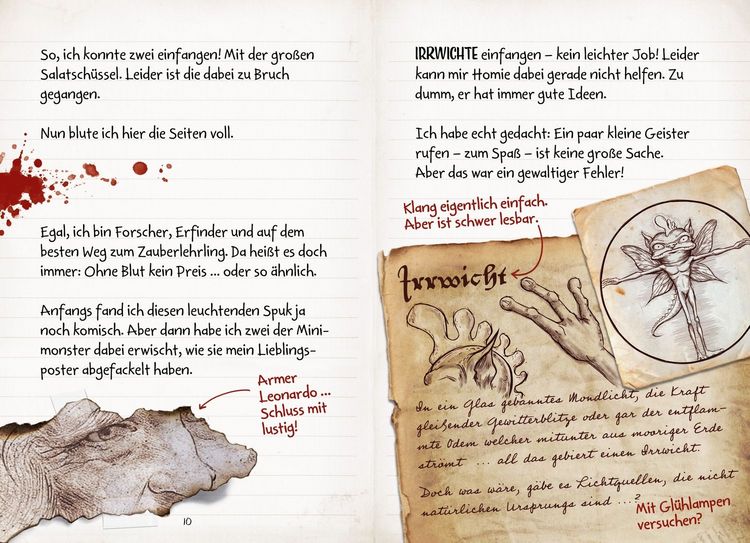 So, ich konnte zwei einfangen! Mit der großen
Salatschüssel. Leider ist die dabei zu Bruch
gegangen.
Nun blute ich hier die Seiten voll.
Egal, ich bin Forscher, Erfinder und auf dem
besten Weg zum Zauberlehrling. Da heißt es doch
immer: Ohne Blut kein Preis ... oder so ähnlich.
Anfangs fand ich diesen leuchtenden Spuk ja
noch komisch. Aber dann habe ich zwei der Mini-
monster dabei erwischt, wie sie mein Lieblings-
poster abgefackelt haben.
Armer
Leonardo ...
Schluss mit
lustig!
10
IRRWICHTE einfangen – kein leichter Job! Leider
kann mir Homie dabei gerade nicht helfen. Zu
dumm, er hat immer gute Ideen.
Ich habe echt gedacht: Ein paar kleine Geister
rufen – zum Spaß – ist keine große Sache.
Aber das war ein gewaltiger Fehler!
Klang eigentlich einfach.
Aber ist schwer lesbar.
Irrwicht
In ein Glas gebanntes Mondlicht, die Kraft
gleißender Gewitterblitze oder gar der entflam-
mte Odem welcher mitunter aus mooriger Erde
strömt ... all das gebiert einen Irrwicht.
Doch was wäre, gäbe es Lichtquellen, die nicht
natürlichen Ursprungs sind ...?
Mit Glühlampen
versuchen?